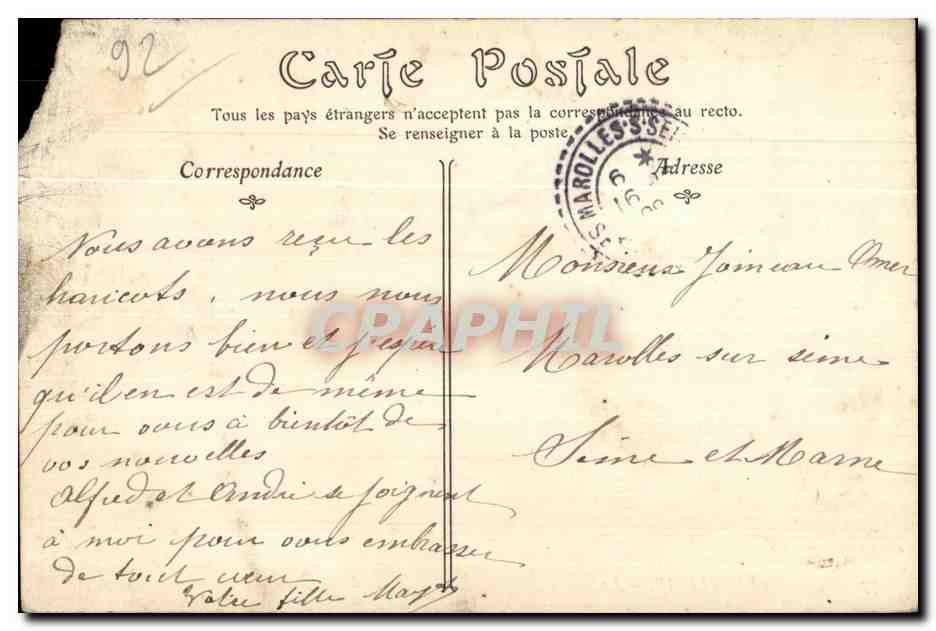 92
Carte Postale
Tous les pays étrangers n'acceptent pas la correspondance au recto.
Se renseigner à la poste.
Correspondance
Adresse
MAROLLES-S-SEI
6
16
Nous avons reçu les
haricots, nous nous
portons bien et j'espère
qu'il en est de même
pour vous à bientôt de
vos nouvelles
Alfred et André se joignent
à moi pour vous embrasser
de tout cœur
Votre fille
Monsieur Joineau Omer
Marolles sur seine
Seine et Marne
CPAPHIL